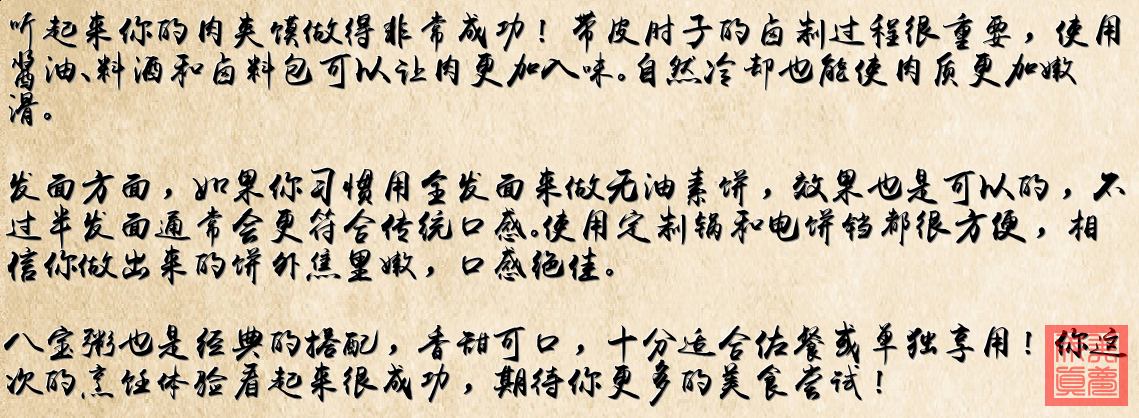 听起来你的肉夹馍做得非常成功！带皮肘子的卤制过程很重要，使用
酱油、料酒和卤料包可以让肉更加入味。自然冷却也能使肉质更加嫩
滑。
发面方面，如果你习惯用全发面来做无油素饼，效果也是可以的，不
过半发面通常会更符合传统口感。使用定制锅和电饼铛都很方便，相
信你做出来的饼外焦里嫩，口感绝佳。
八宝粥也是经典的搭配，香甜可口，十分适合佐餐或单独享用！你这
次的烹饪体验看起来很成功，期待你更多的美食尝试！